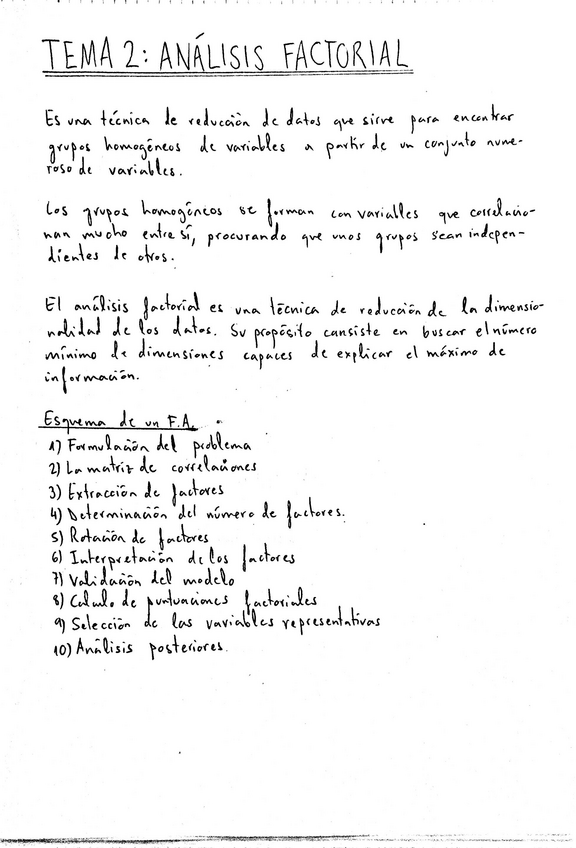 TEMA 2: ANÁLISIS FACTORIAL
Es una técnica de reducción de datos que sirve para encontrar
grupos homogéneos de variables a partir de un conjunto nume-
roso de variables.
Los grupos homogéneos se forman con variables que correlacio-
nan mucho entre sí, procurando que unos grupos sean indepen-
dientes de otros.
El análisis factorial es una técnica de reducción de la dimensio-
nalidad de los datos. Su propósito consiste en buscar el número
mínimo de dimensiones capaces de explicar el máximo de
información.
Esquema de un F.A.
1) Formulación del problema
2) La matriz de correlaciones
3) Extracción de factores
4) Determinación del número de factores.
5) Rotación de factores
6) Interpretación de los factores
7) Validación del modelo
8) Calculo de puntuaciones factoriales
9) Selección de las variables representativas
10) Análisis posteriores.